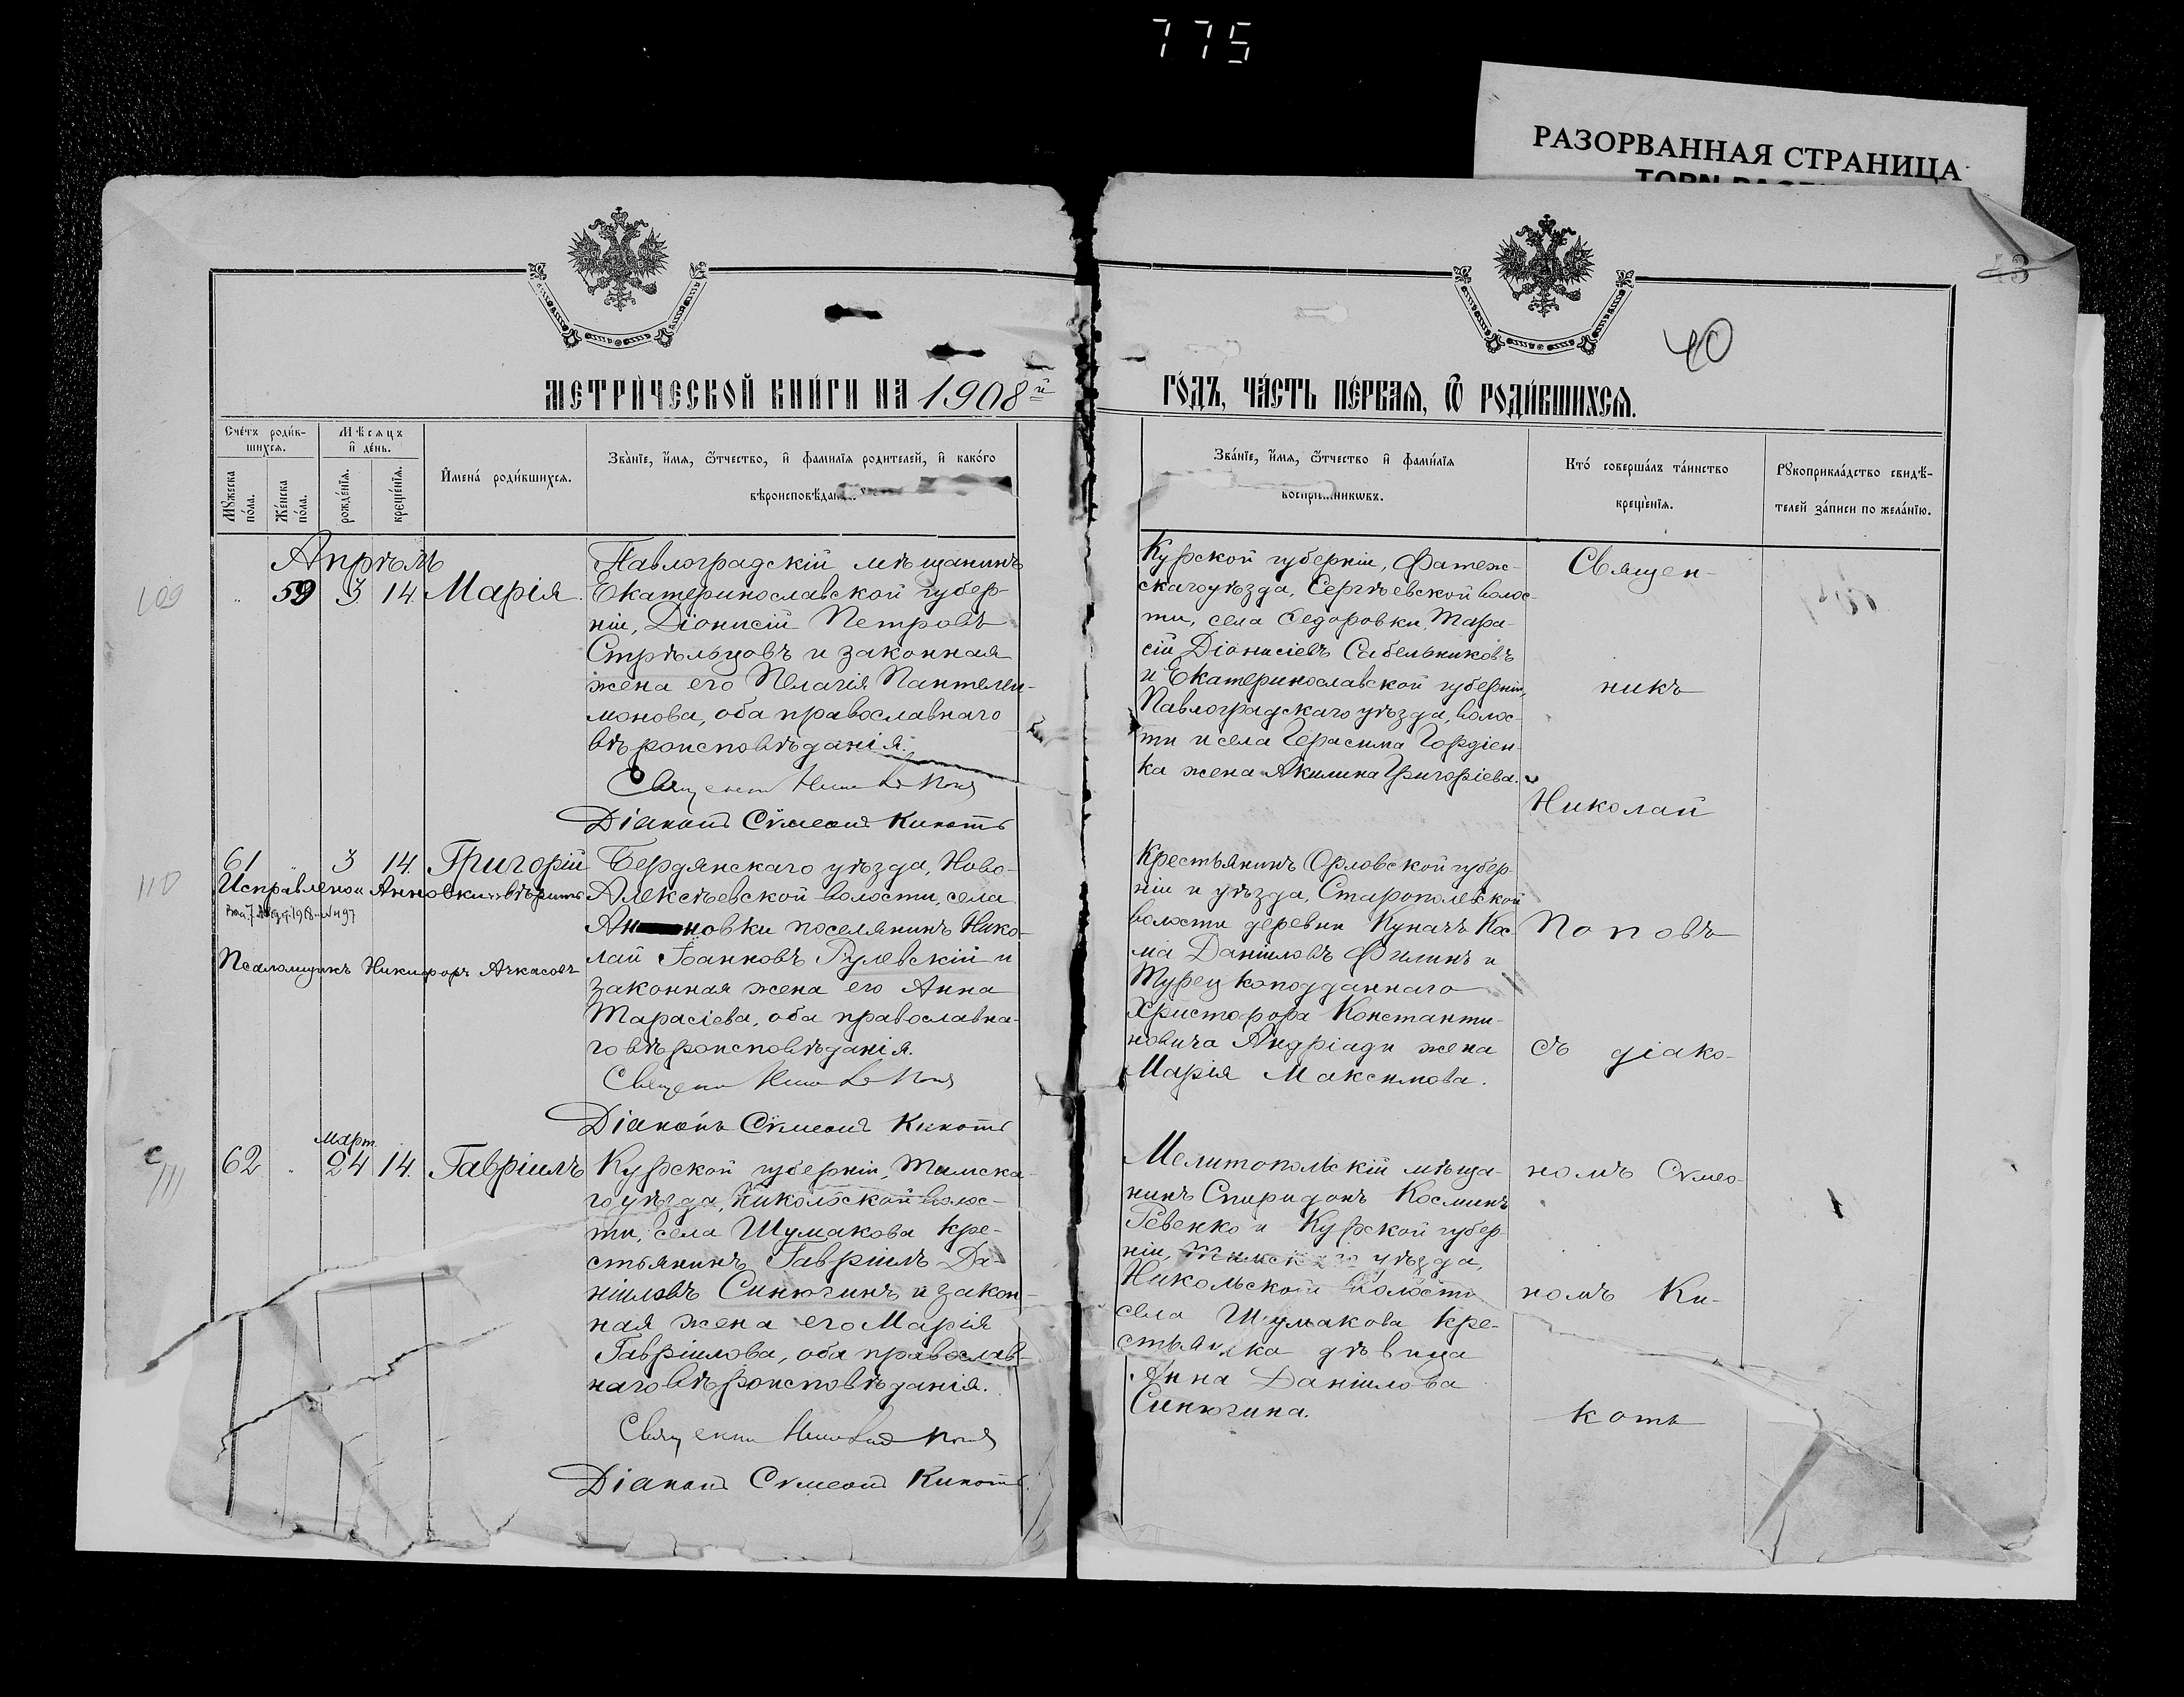 775
РАЗОРВАННАЯ СТРАНИЦА
43
40
МЕТРИ́ЧЕСКОЙ КНИ́ГИ НА 1908й
ГО́ДЪ, ЧА́СТЬ ПЕ́РВАЯ, Ѿ РОДИ́ВШИХСЯ.
Сче́тъ роди́в-
шихся.
Мѣ́сяцъ
и де́нь.
Мꙋ́жеска
по́ла.
Же́нска
по́ла.
рожде́нїѧ.
креще́нїѧ.
И҆мена́ роди́вшихсѧ.
Зва́нїе, и҆́мѧ, ѻ҆́тчество, и҆ фами́лїѧ роди́телей, и҆ како́гѡ
вѣроисповѣ́данїѧ.
Зва́нїе, и҆́мѧ, ѻ҆́тчество и҆ фами́лїѧ
воспрїе́мникѡвъ.
Кто́ соверша́лъ та́инство
креще́нїѧ.
Рꙋкоприкла́дство свидѣ́-
телей за́писи по жела́нїю.
Апрѣль
109
„ 59 3 14. Марія.
Павлоградскій мѣщанинъ
Екатеринославской губер-
ніи, Діонисій Петровъ
Стрѣльцовъ и законная
жена его Пелагія Пантелеи-
монова, оба православнаго
вѣроисповѣданія.
Діаконъ Сѵмеонъ Кикоть
Курской губерніи, Фатеж-
скаго уѣзда, Сергѣевской волос-
ти, села Ѳедоровки Тара-
сій Діонисіевъ Сабельниковъ
и Екатеринославской губерніи,
Павлоградскаго уѣзда, волос-
ти и села Герасима Гордіен-
ка жена Акилина Григоріева.
Священ-
никъ
Николай
110
61 „ 3 14. Григорій
Исправленои Анновки вѣрить
Псаломщикъ Никифоръ Ачкасовъ
Бердянскаго уѣзда, Ново-
Алексѣевской волости, села
Ан новки поселянинъ Нико-
лай Банковъ Рулевскій и
законная жена его Анна
Тарасіева, оба православна-
го вѣроисповѣданія.
Діаконъ Сѵмеонъ Кикоть
Крестьянинъ Орловской губер-
ніи и уѣзда, Старопольской
волости деревни Куначъ Кос-
ма Даниловъ Филинъ и
Турецкоподданнаго
Христофора Константи-
новича Андріади жена
Марія Максимова.
Поповъ
съ діако-
111
62 „ Март. 24 14. Гавріилъ
Курской губерніи, Тимска-
го уѣзда, Никольской волос-
ти, села Шумакова кре-
стьянинъ Гавріилъ Да-
ніиловъ Синюгинъ и закон-
ная жена его Марія
Гавріилова, оба православ-
наго вѣроисповѣданія.
Діаконъ Сѵмеонъ Кикоть
Мелитопольскій мѣща-
нинъ Спиридонъ Косминъ
Ревенко и Курской губер
ніи, Тимскаго уѣзда,
Никольской волости
села Шумакова кре-
стьянка дѣвица
Анна Даніилова
Синюгина.
номъ Сѵмео-
номъ Ки-
коть